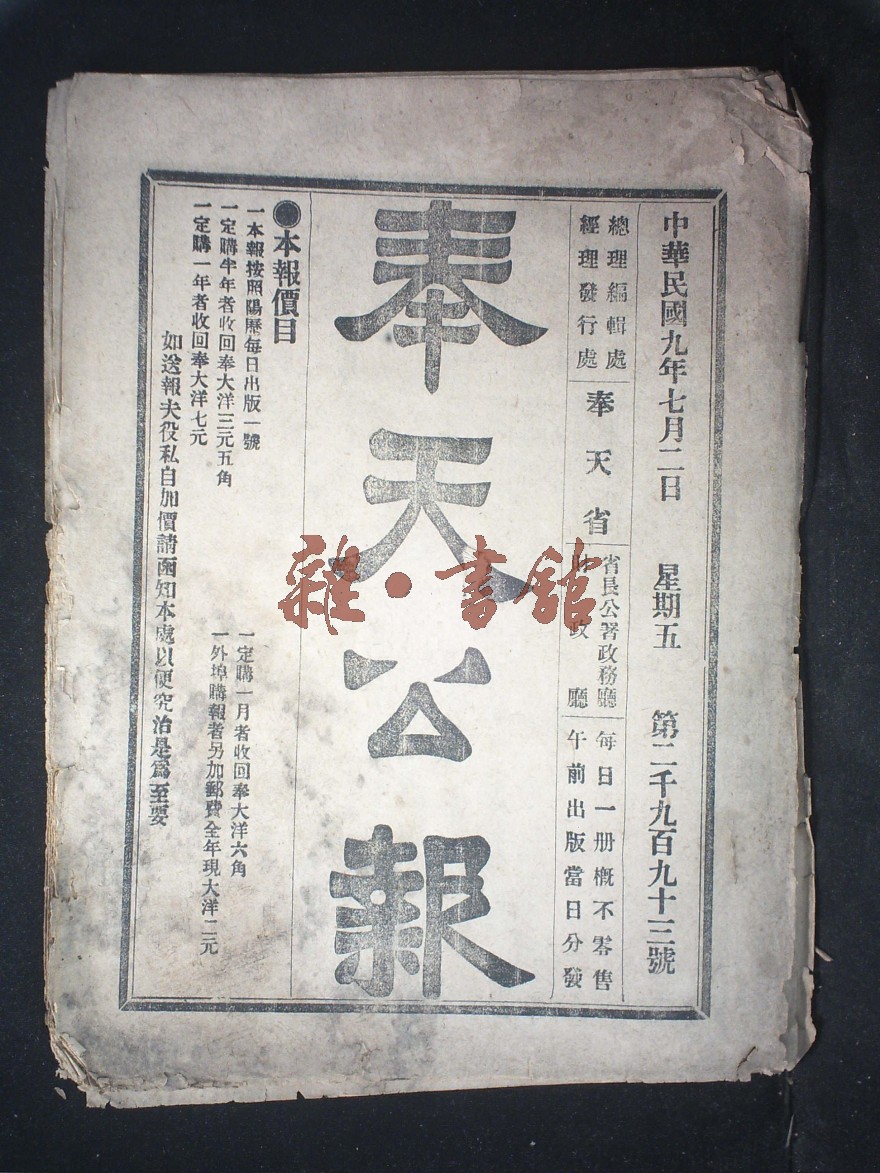 中華民國九年七月二日　星期五　第二千九百九十三號
總理編輯處
經理發行處
奉天省
省長公署政務廳
財政廳
每日一册概不零售
午前出版當日分發
奉天公報
●本報價目
一本報按照陽歷每日出版一號
一定購半年者收回奉大洋三元五角
一定購一年者收回奉大洋七元
一定購一月者收回奉大洋六角
一外埠購報者另加郵費全年現大洋二元
如送報夫役私自加價請函知本處以便究治是爲至要
雜·書館